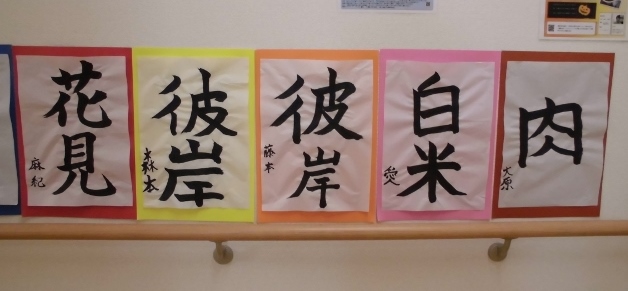 花見
麻紀
彼岸
森本
彼岸
藤本
白米
愛
肉
大原